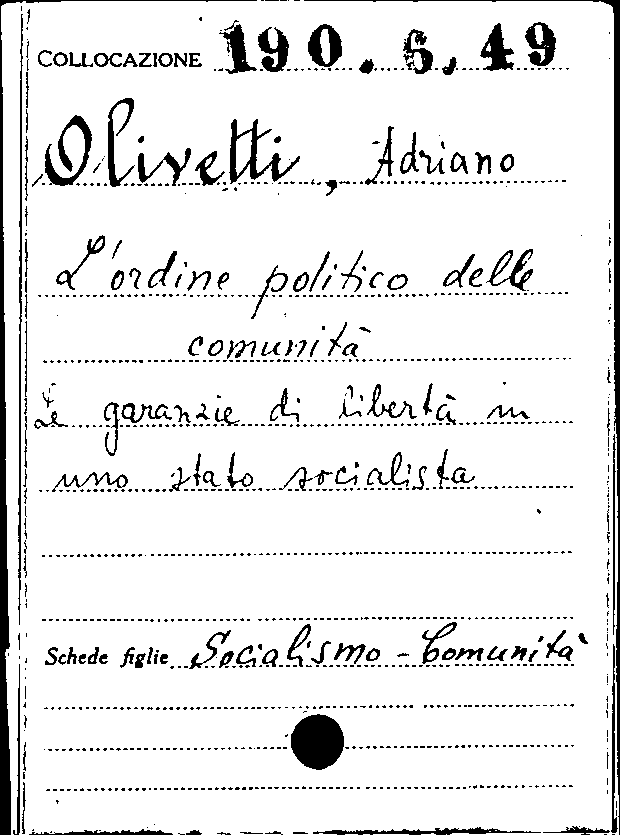 COLLOCAZIONE 190.6,49
Olivetti, Adriano
L'ordine politico delle
comunità
Le garanzie di libertà in
uno stato socialista
Schede figlie Socialismo - Comunità